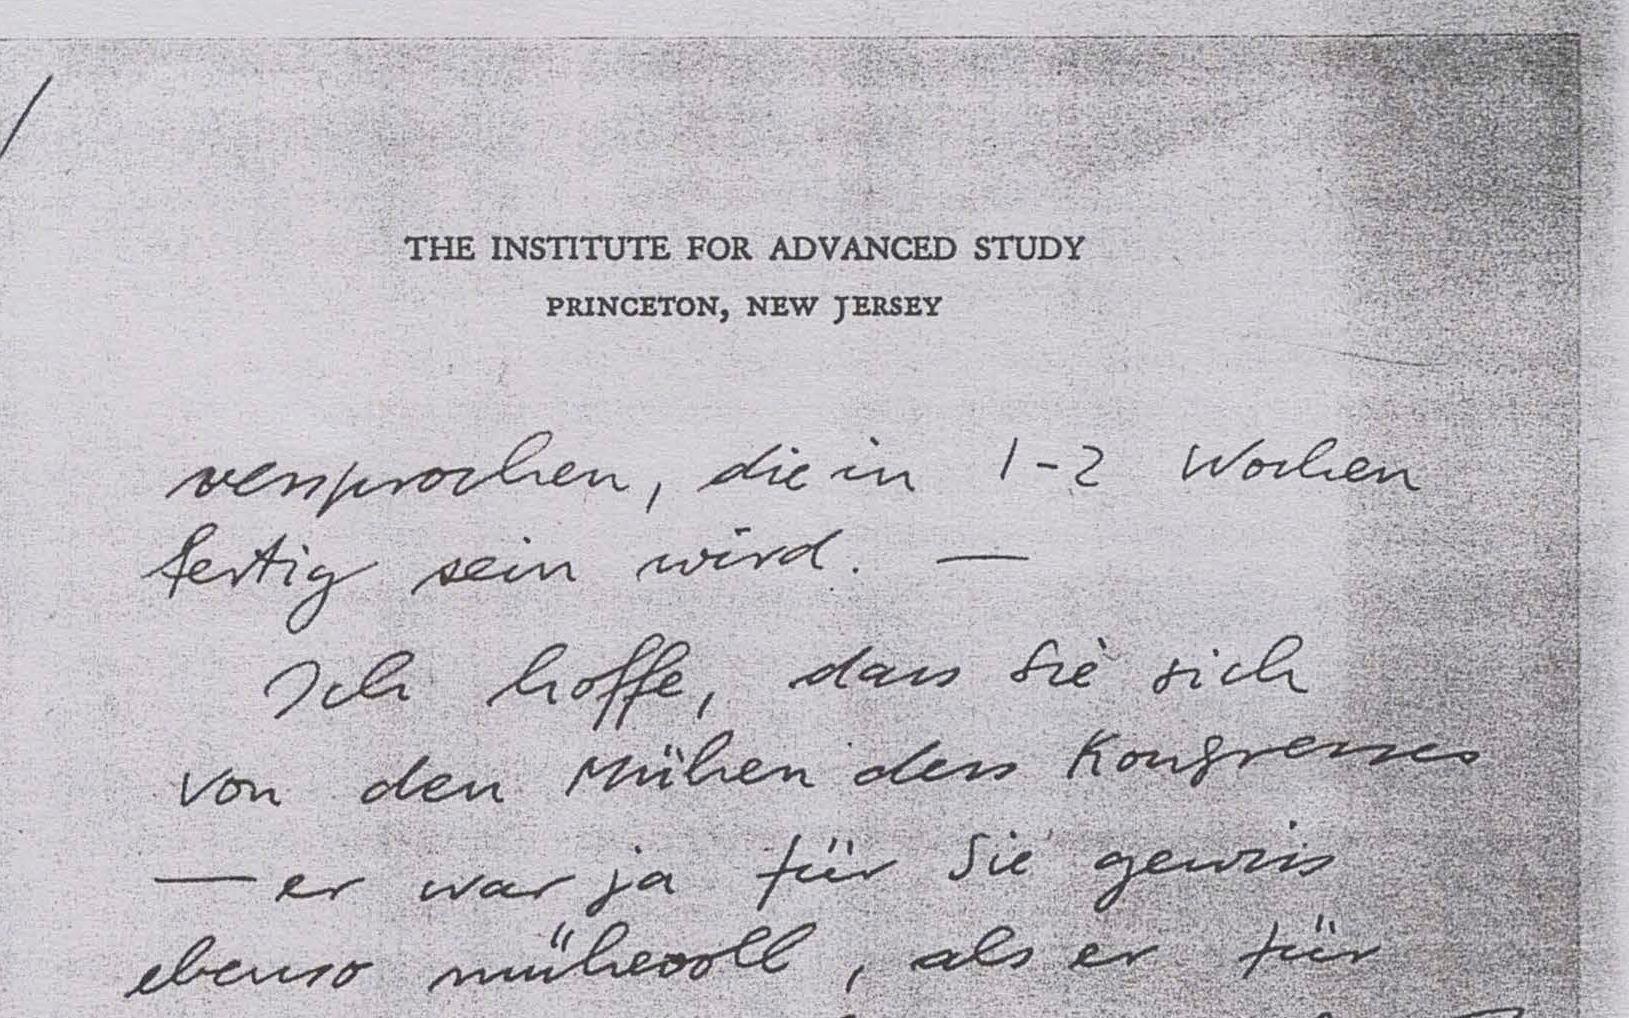 THE INSTITUTE FOR ADVANCED STUDY
PRINCETON, NEW JERSEY
versprochen, die in 1-2 Wochen
fertig sein wird. —
Ich hoffe, dass Sie sich
von den Mühen des Kongresses
— er war ja für Sie gewiss
ebenso mühevoll, als er für